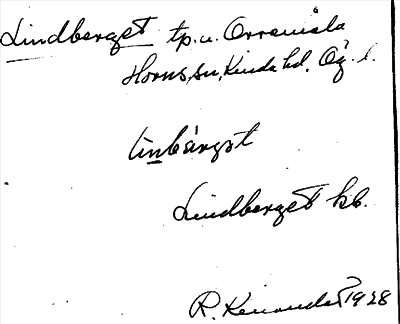 Lindberget tp. u. Orremåla
Horns sn, Kinda hd, Ög. l.
linbärgət
Lindberget kb.
R. 1928